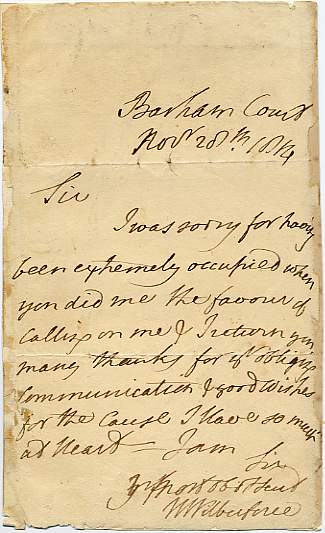 Barham Court
Novr 28th. 1814
Sir
I was sorry for having
been extremely occupied when
you did me the favour of
calling on me & I return you
many thanks for yr obliging
Communication & good wishes
for the Cause I have so much
at Heart — I am
Sir
yr most obedt Servt
W Wilberforce